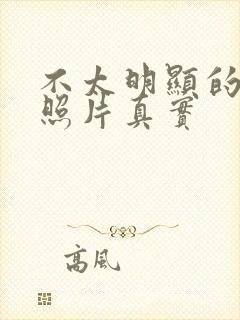 不太明顯的
照片真實
高風